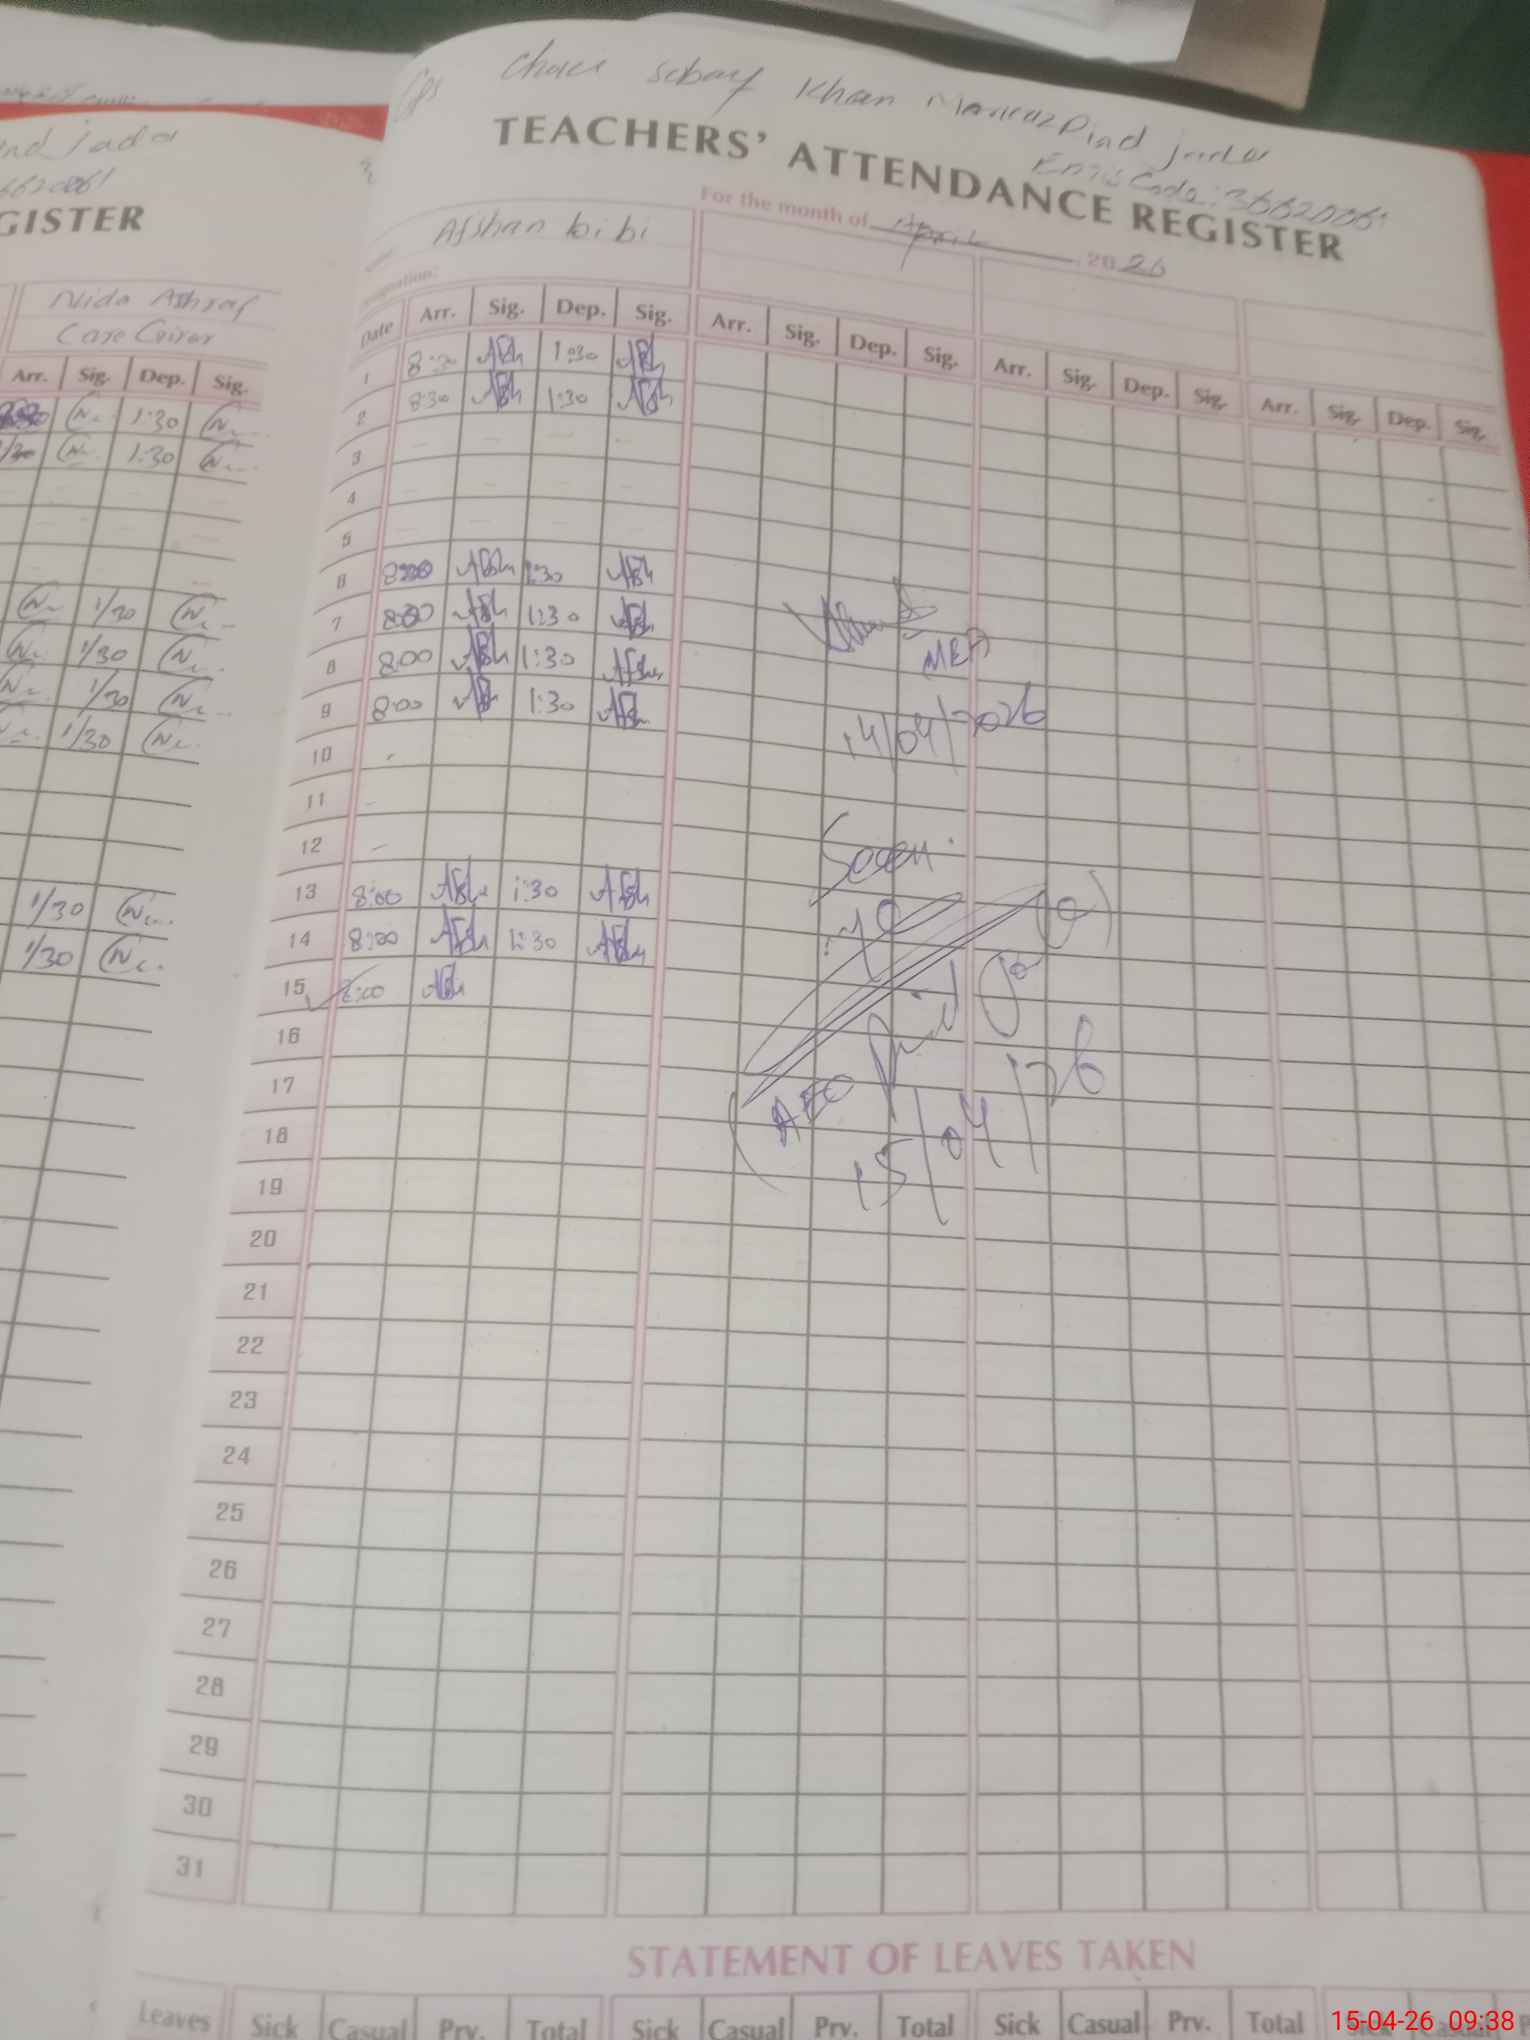 nd jada
GISTER
Nida Ashraf
Care Giver
Arr. Sig. Dep. Sig.
1:30
1:30
1/30
1/30
1/30
1/30
1/30
1/30
Khan Marcaz Pind jada
TEACHERS' ATTENDANCE REGISTER
Emis Code: 36620061
For the month of April 2026
Afshan bibi
Date Arr. Sig. Dep. Sig. Arr. Sig. Dep. Sig. Arr. Sig. Dep. Sig. Arr. Sig. Dep. Sig.
1 8:30 Afsh 1:30 Afsh
2 8:30 Afsh 1:30 Afsh
3
4
5
6 Afsh 1:30 Afsh
7 Afsh 1:30 Afsh
8 8:00 Afsh 1:30 Afshan
9 8:00 1:30 Afsh
10
11
12
13 8:00 Afsh 1:30 Afsh
14 8:00 Afsh 1:30 Afsh
15 8:00 Afsh
16
17
18
19
20
21
22
23
24
25
26
27
28
29
30
31
MEA
14/04/2026
Seen
AEO
15/04/26
STATEMENT OF LEAVES TAKEN
Leaves Sick Casual Prv. Total Sick Casual Prv. Total Sick Casual Prv. Total
15-04-26 09:38